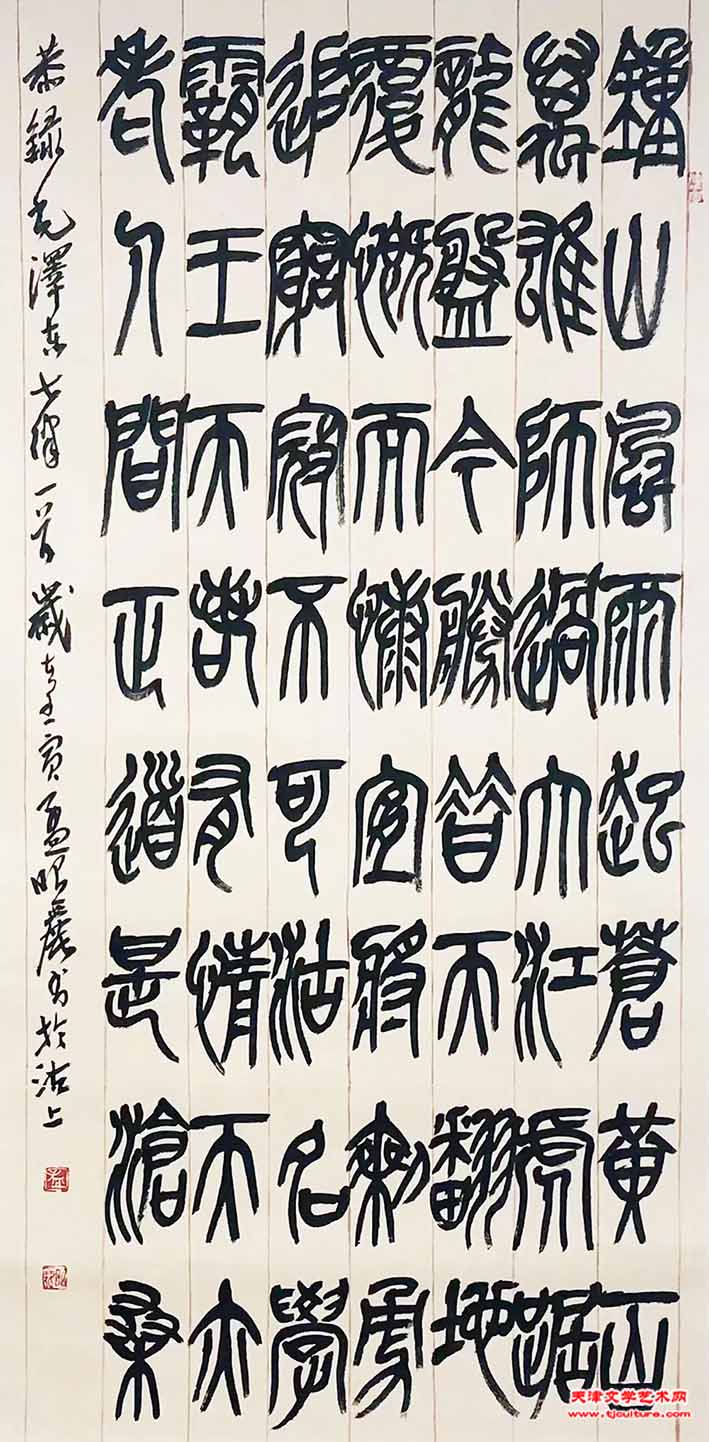 鍾山風雨起蒼黄百
萬雄師過大江虎踞
龍盤今勝昔天翻地
覆慨而慷宜將剩勇
追窮寇不可沽名學
霸王天若有情天亦
老人間正道是滄桑
恭錄毛澤東七律一首歲在壬寅孟昭麗書於沽上
天津文学艺术网
www.tjculture.com